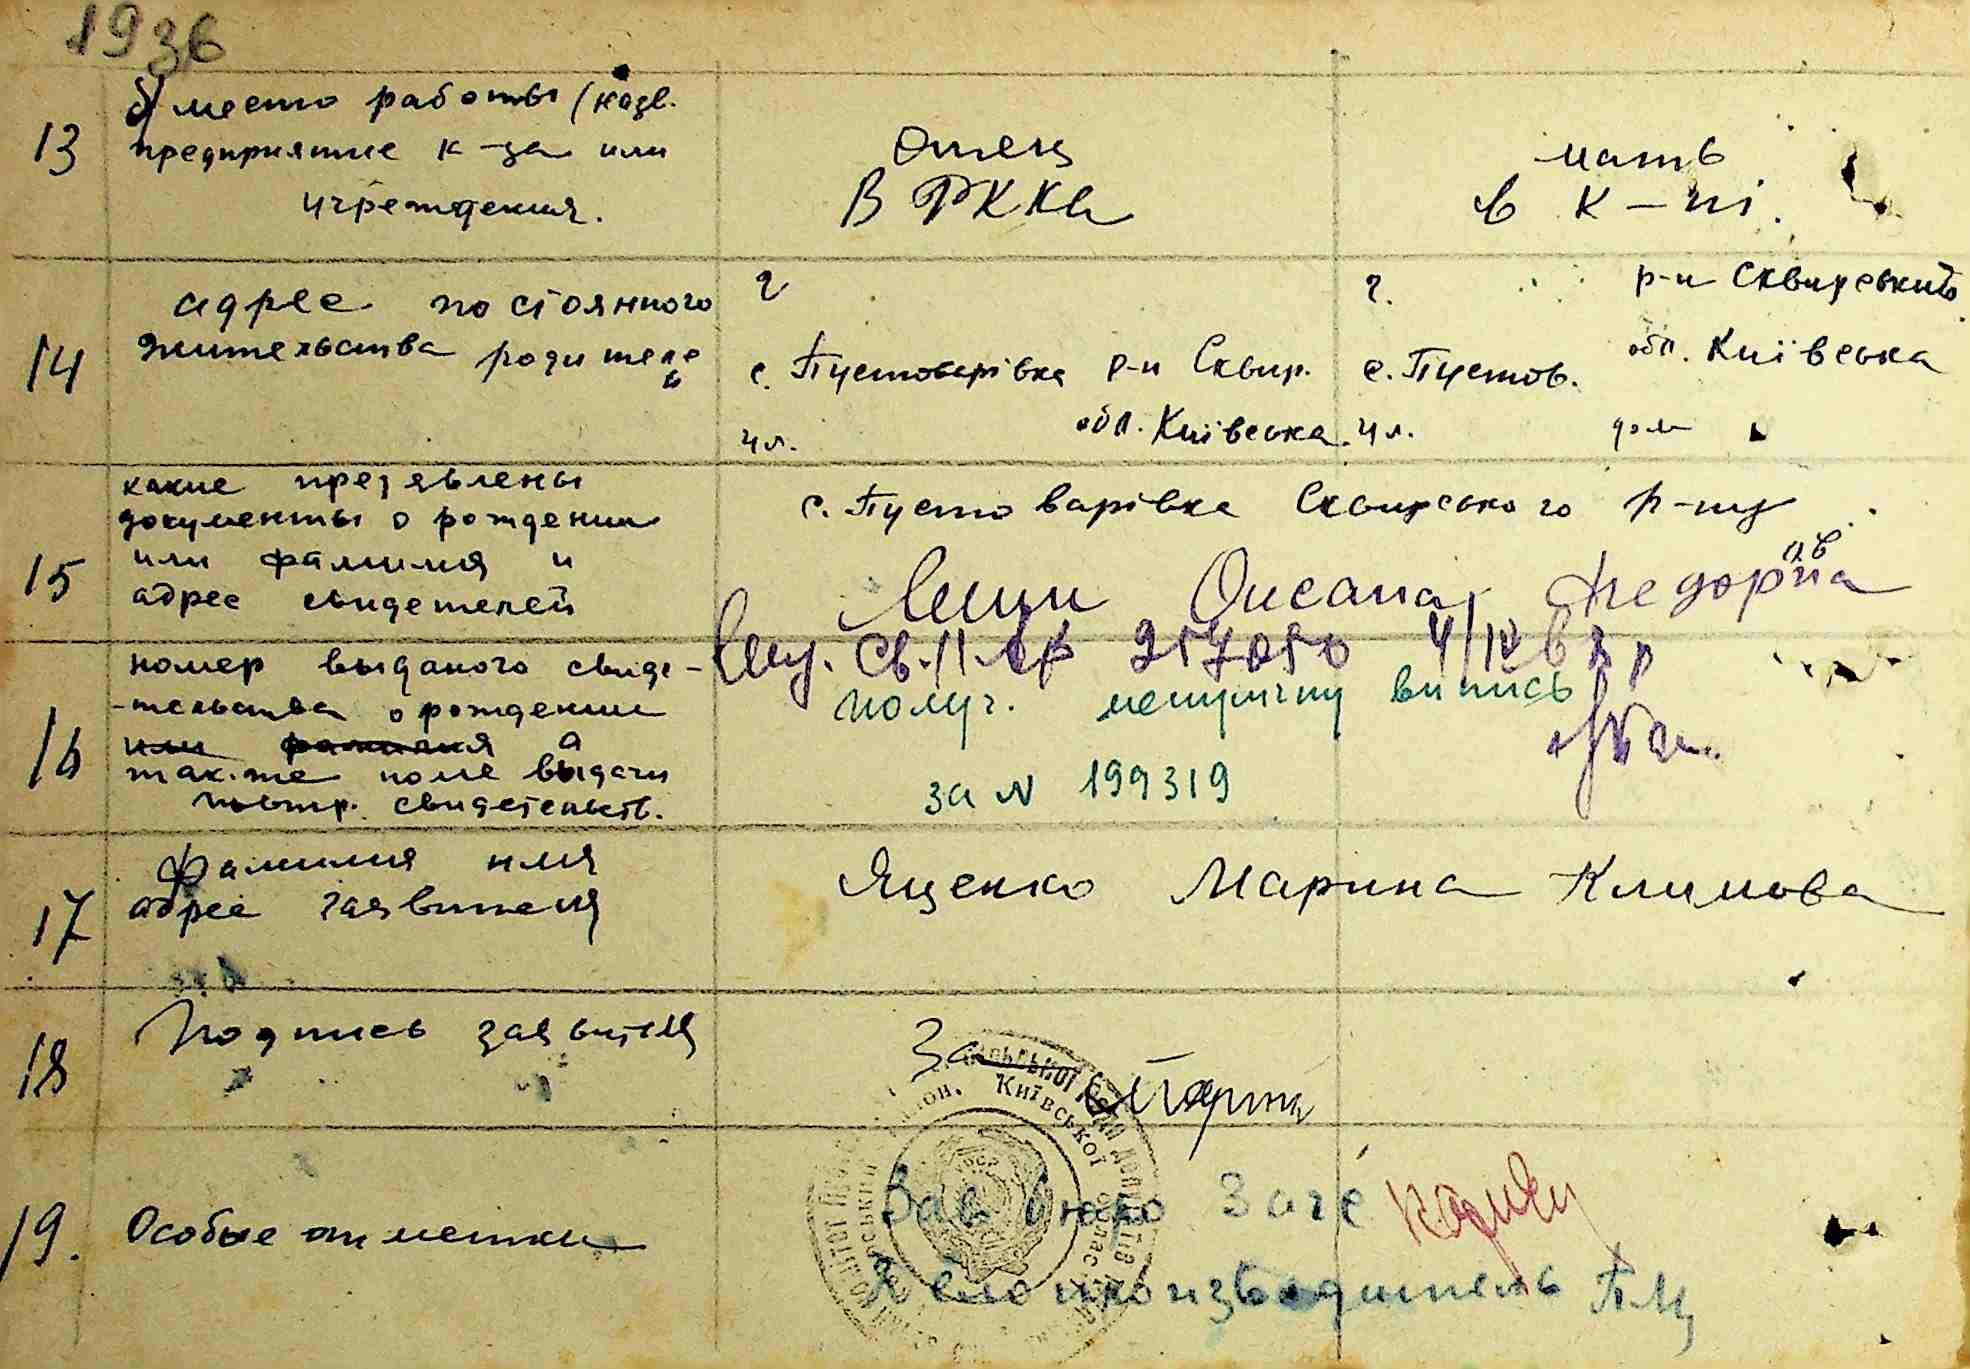 1936
13
б) место работы (назв.
предприятие к-за или
учреждения.
отец
В РККА
мать
в к-пі.
14
адрес постоянного
жительства родителе
й
г
с. Пустоварівка р-н Сквир.
обл. Київська.
ул.
г.
р-н Сквирський
с. Пустов.
обл. Київська
ул.
дом
15
какие предявлены
документы о рождении
или фамилия и
адрес свидетелей
с. Пустоварівка Сквирського р-ну
Оксана Федорів
на
16
номер выданого свиде-
-тельства о рождении
или фамилия а
так-же поле выдачи
повтр. свидетельств.
св. II 257050 4/IV 62 р
получ. метричну випись
за N 199319
17
Фамилия имя
адрес заявителя
Яценко Марина Климова
18
Подпись заявител
За
19.
Особые отметки
Зав бюро Загс
Делопроизводитель
Київської
УРСР